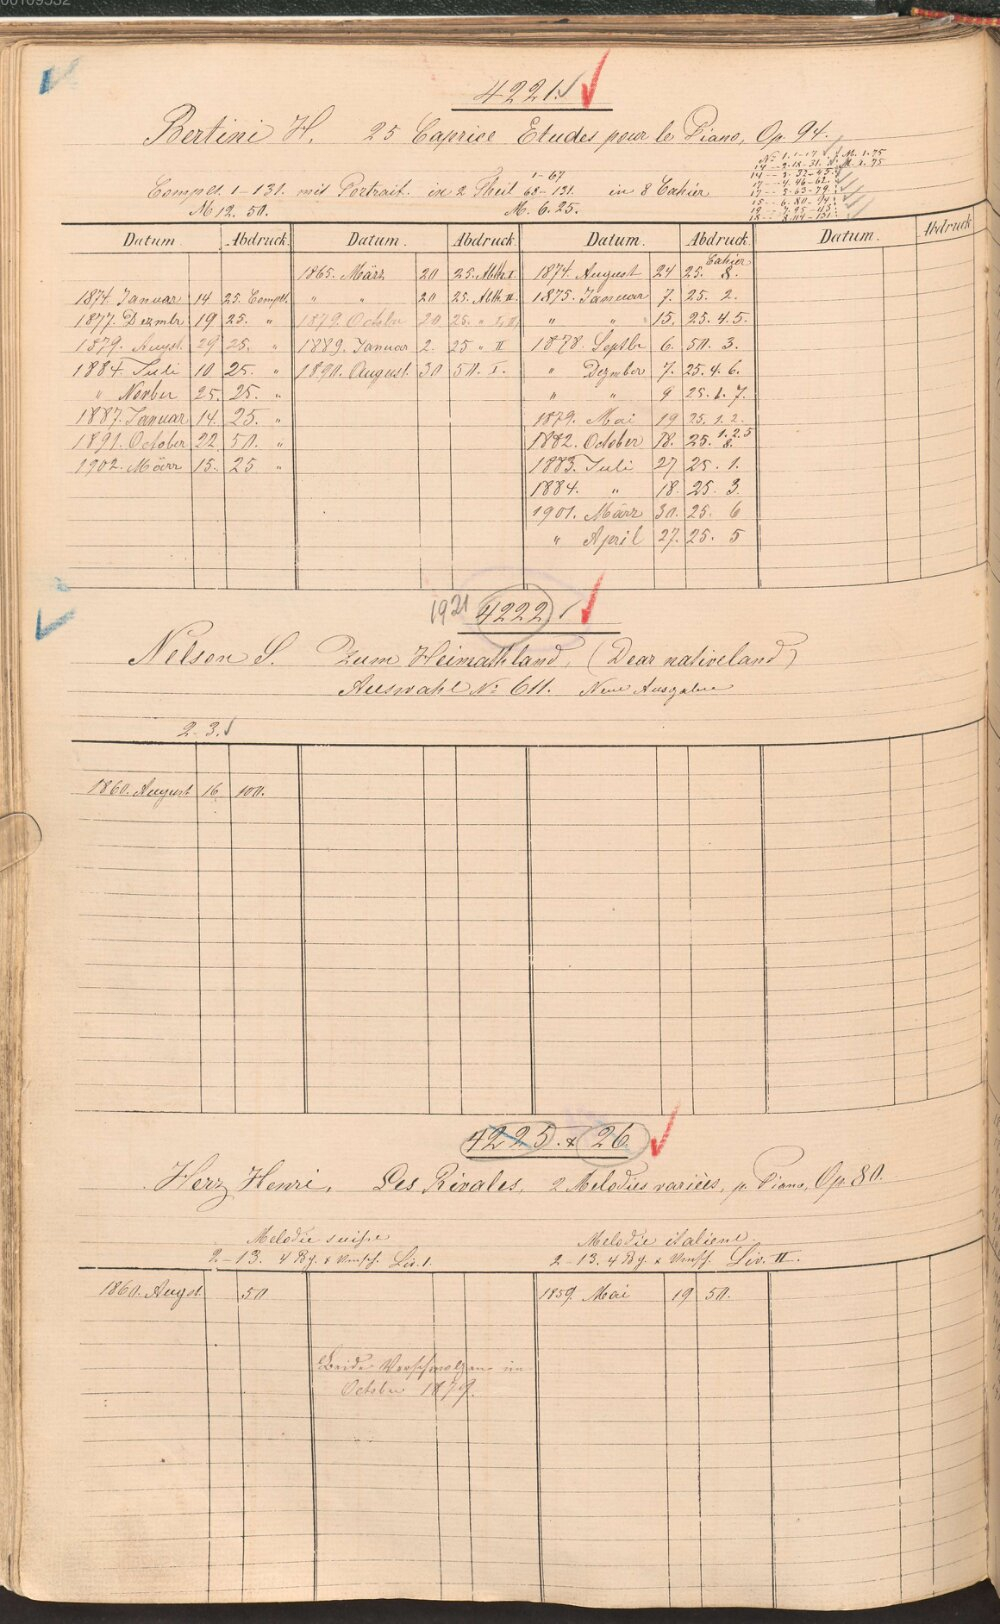 4221.
Bertini H. 25 Caprice Etudes pour le Piano, Op. 94.
No 1. 1-17 M. 1.75
14 - 2. 18-31. M. 1.75
14 - 3. 32-45.
17 - 4. 46-62
17 - 5. 63-79
15 - 6. 80-94
19 - 7. 95-113
18 - 8. 114-131
Complet. 1-131. mit Portrait. in 2 Theil 1-67 68-131. in 8 Cahier
M 12. 50. M. 6. 25.
Datum. Abdruck Datum. Abdruck Datum. Abdruck Datum. Abdruck
1865. März 20 25. Abth. I 1874. August 24 25. Cahier 8.
1874. Januar 14 25. Complt. " " 20 25. Abth. II 1875. Januar 7. 25. 2.
1877. Dezmbr 19 25. " 1879. Octobr 20 25. " I, II " " 15. 25. 4. 5.
1879. August 29 25. " 1889. Januar 2. 25 " II 1878. Septbr 6. 50. 3.
1884. Juli 10 25. " 1890. August. 30 50. I. " Dezmber 7. 25. 4. 6.
" Novber 25. 25. " " " 9 25. 1. 7.
1887. Januar 14. 25. " 1879. Mai 19 25. 1. 2.
1891. October 22 50. " 1882. October 18. 25. 1. 2. 5 8.
1902. März 15. 25 " 1883. Juli 27 25. 1.
1884. " 18. 25. 3.
1901. März 30. 25. 6
" April 27. 25. 5
1921 4222
Nelson S. Zum Heimathland, (Dear nativeland)
Auswahl No 611. Neue Ausgabe
2-3.
1860. August 16 100.
4225. & 26.
Herz Henri, Les Rivales, 2 Melodies variées, p. Piano, Op. 80.
Melodie suisse Melodie italiene.
2-13. 4 Bg. & Umsch. Liv. I. 2-13. 4 Bg. & Umsch. Liv. II.
1860. Augst. 50 1859. Mai 19 50.
October 1879.